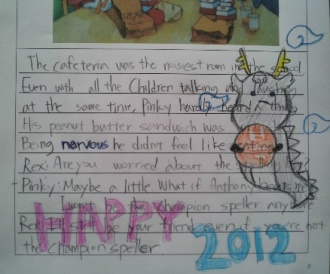 The cafeteria was the noisest room in the
Even with all the Children talking
at the same time, Pinky hardly heard a
His peanut butter sandwich was
Being nervous he didn't feel like eating
Rex: Are you worried about the
Pinky: Maybe a little What if Anthony
the champion speller any
Rex: be your friend even if you're not
the champion speller
HAPPY
2012